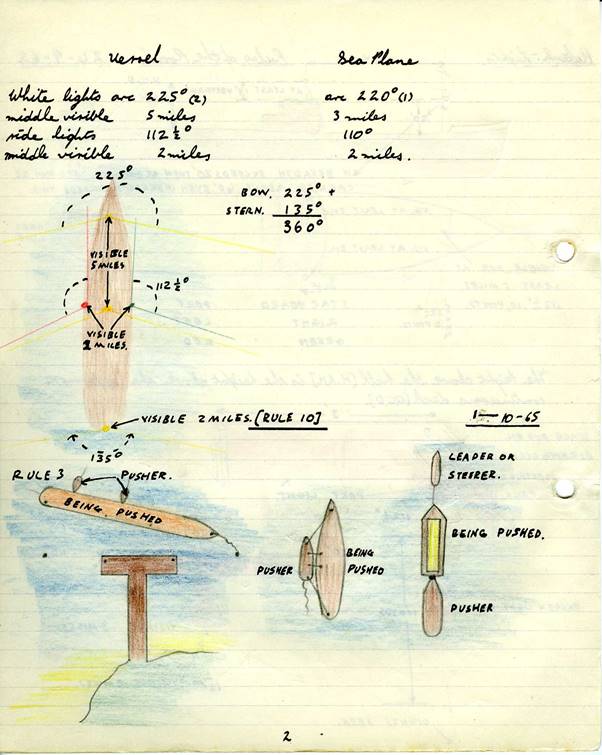 Vessel Sea Plane
White lights arc 225° (2) arc 220° (1)
middle visible 5 miles 3 miles
side lights 112½° 110°
middle visible 2 miles 2 miles.
225°
BOW. 225° +
STERN. 135°
360°
VISIBLE
5 MILES
112½°
VISIBLE
2 MILES.
VISIBLE 2 MILES. [RULE 10]
1-10-65
135°
RULE 3 PUSHER.
BEING PUSHED
LEADER OR
STEERER.
BEING PUSHED.
PUSHER
PUSHER
BEING
PUSHED
2